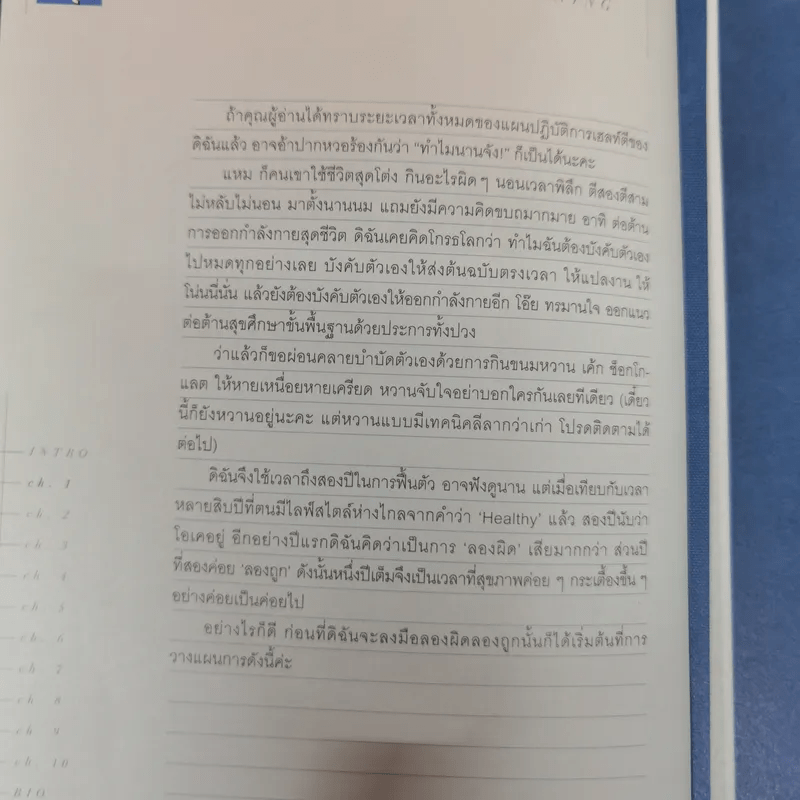 ถ้าคุณผู้อ่านได้ทราบระยะเวลาทั้งหมดของแผนปฏิบัติการเฮลท์ตี้ของ
ดิฉันแล้ว อาจอ้าปากหวอร้องกันว่า “ทำไมนานจัง!” ก็เป็นได้นะคะ
แหม ก็คนเขาใช้ชีวิตสุดโต่ง กินอะไรผิด ๆ นอนเวลาพิลึก ตีสองตีสาม
ไม่หลับไม่นอน มาตั้งนานนม แถมยังมีความคิดขบถมากมาย อาทิ ต่อต้าน
การออกกำลังกายสุดชีวิต ดิฉันเคยคิดโกรธโลกว่า ทำไมฉันต้องบังคับตัวเอง
ไปหมดทุกอย่างเลย บังคับตัวเองให้ส่งต้นฉบับตรงเวลา ให้แปลงาน ให้
โน่นนี่นั่น แล้วยังต้องบังคับตัวเองให้ออกกำลังกายอีก โอ๊ย ทรมานใจ ออกแนว
ต่อต้านสุขศึกษาขั้นพื้นฐานด้วยประการทั้งปวง
ว่าแล้วก็ขอผ่อนคลายบำบัดตัวเองด้วยการกินขนมหวาน เค้ก ช็อกโก-
แลต ให้หายเหนื่อยหายเครียด หวานจับใจอย่าบอกใครกันเลยทีเดียว (เดี๋ยว
นี้ก็ยังหวานอยู่นะคะ แต่หวานแบบมีเทคนิคลีลากว่าเก่า โปรดติดตามได้
ต่อไป)
ดิฉันจึงใช้เวลาถึงสองปีในการฟื้นตัว อาจฟังดูนาน แต่เมื่อเทียบกับเวลา
หลายสิบปีที่ตนมีไลฟ์สไตล์ห่างไกลจากคำว่า ‘Healthy’ แล้ว สองปีนับว่า
โอเคอยู่ อีกอย่างปีแรกดิฉันคิดว่าเป็นการ ‘ลองผิด’ เสียมากกว่า ส่วนปี
ที่สองค่อย ‘ลองถูก’ ดังนั้นหนึ่งปีเต็มจึงเป็นเวลาที่สุขภาพค่อย ๆ กระเตื้องขึ้น ๆ
อย่างค่อยเป็นค่อยไป
อย่างไรก็ดี ก่อนที่ดิฉันจะลงมือลองผิดลองถูกนั้นก็ได้เริ่มต้นที่การ
วางแผนการดังนี้ค่ะ
INTRO
ch. 1
ch. 2
ch. 3
ch. 4
ch. 5
ch. 6
ch. 7
ch. 8
ch. 9
ch. 10
BIO